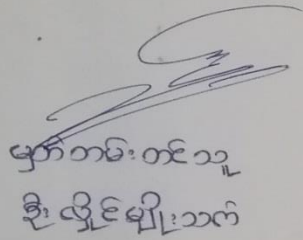 မှတ်တမ်းတင်သူ
ဦး လှိုင်မျိုးသက်